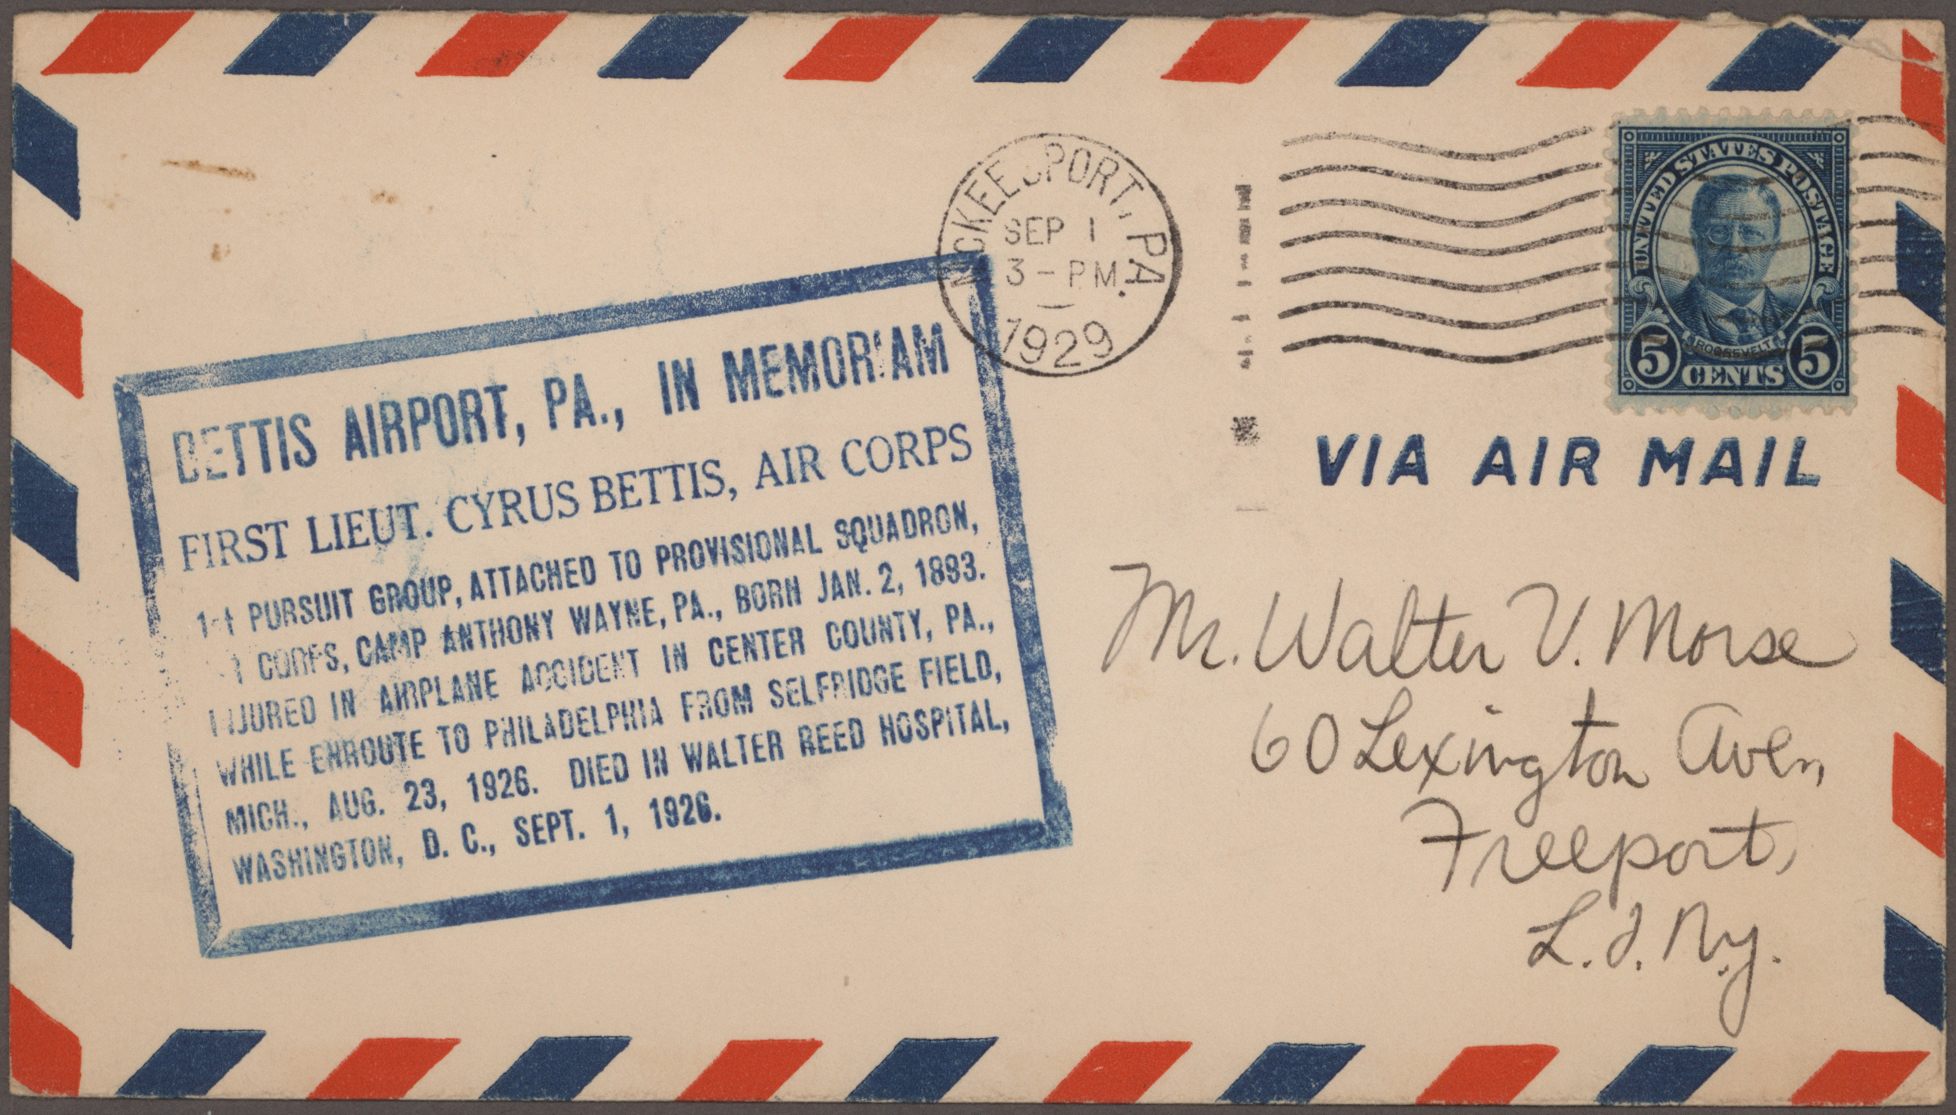 McKEESPORT, PA.
SEP 1
3 - PM
1929
UNITED STATES POSTAGE
ROOSEVELT
5 CENTS 5
VIA AIR MAIL
BETTIS AIRPORT, PA., IN MEMORIAM
FIRST LIEUT. CYRUS BETTIS, AIR CORPS
1st PURSUIT GROUP, ATTACHED TO PROVISIONAL SQUADRON,
CORPS, CAMP ANTHONY WAYNE, PA., BORN JAN. 2, 1893.
INJURED IN AIRPLANE ACCIDENT IN CENTER COUNTY, PA.,
WHILE ENROUTE TO PHILADELPHIA FROM SELFRIDGE FIELD,
MICH., AUG. 23, 1926. DIED IN WALTER REED HOSPITAL,
WASHINGTON, D. C., SEPT. 1, 1926.
Mr. Walter V. Morse
60 Lexington Ave.,
Freeport,
L.I. N.y.